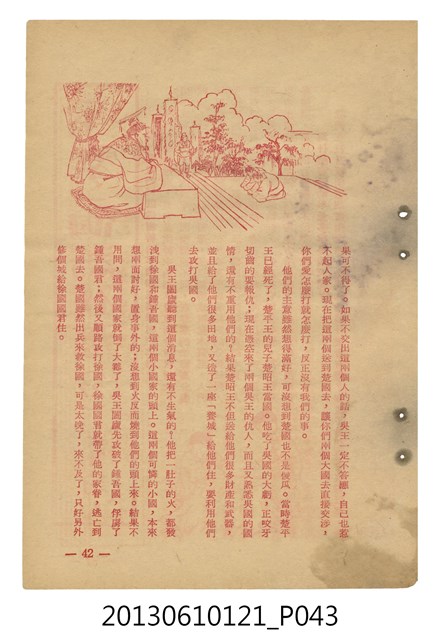 果可不得了。如果不交出這兩個人的話，吳王一定不答應，自己也惹
不起人家。現在把這兩個送到楚國去，讓你們兩個大國去直接交涉，
你們愛怎麼打就怎麼打，反正沒有我們的事。
他們的主意雖然想得滿好，可沒想到楚國也不是傻瓜。當時楚平
王已經死了，楚平王的兒子楚昭王當國。他吃了吳國的大虧，正咬牙
切齒的要報仇；現在憑空來了兩個吳王的仇人，而且又熟悉吳國的國
情，還有不重用他們的？結果楚昭王不但送給他們很多財產和武器，
並且給了他們很多田地，又造了一座「養城」給他們住，要利用他們
去攻打吳國。
吳王闔廬聽到這個消息，還有不生氣的？他把一肚子的火，都發
洩到徐國和鍾吾國，這兩個小國家的頭上。這兩個可憐的小國，本來
想兩面討好，置身事外的；沒想到火反而燒到他們的頭上來。結果不
用間，這兩個國家就倒了大霉了，吳王闔廬先攻破了鍾吾國，俘虜了
鍾吾國君；然後又順路攻打徐國，徐國國君就帶了他的家眷，逃亡到
楚國去。楚國雖然出兵來救徐國，可是太晚了，來不及了，只好另外
修個城給徐國國君住。
— 42 —
20130610121_P043